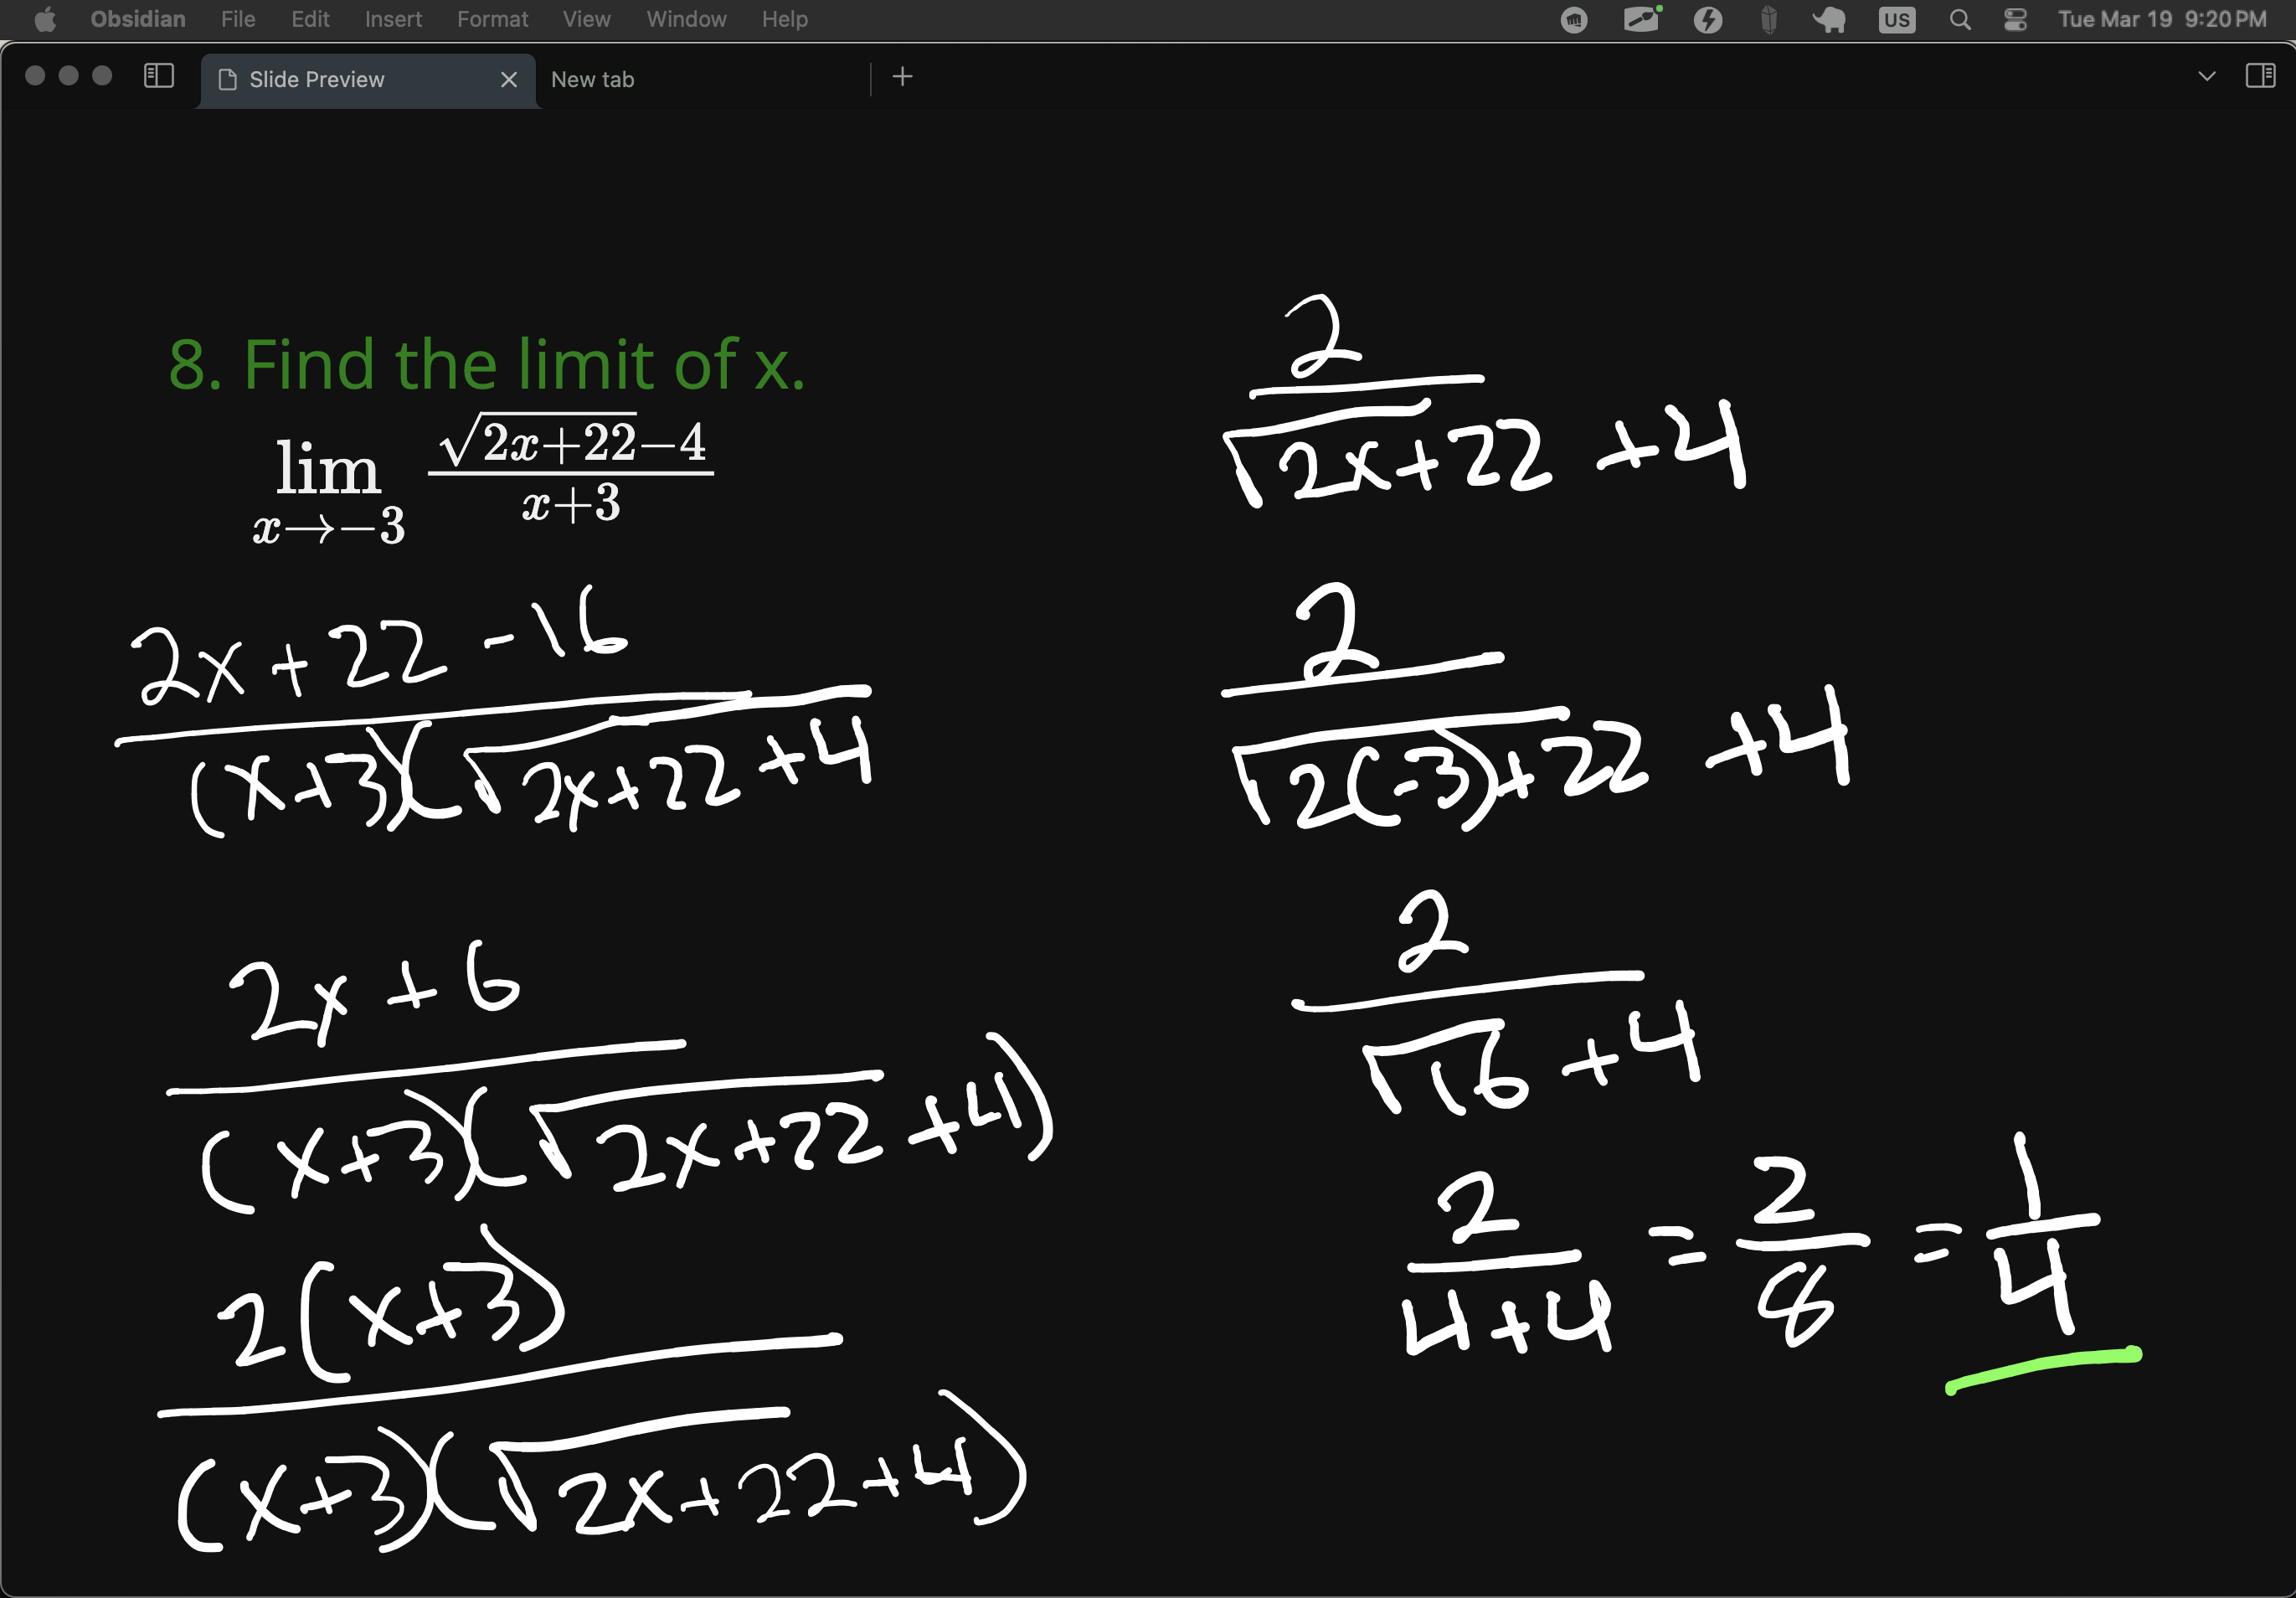 Obsidian File Edit Insert Format View Window Help US Tue Mar 19 9:20 PM
Slide Preview New tab
8. Find the limit of x.
lim x→−3 (√(2x+22)−4)/(x+3)
2x+22-16
(x+3)(√2x+22+4
2x+6
(x+3)(√2x+22+4)
2(x+3)
(x+3)(√2x+22+4)
2
√2x+22 +4
2
√2(-3)+22 +4
2
√16+4
2/(4+4) = 2/8 = 1/4